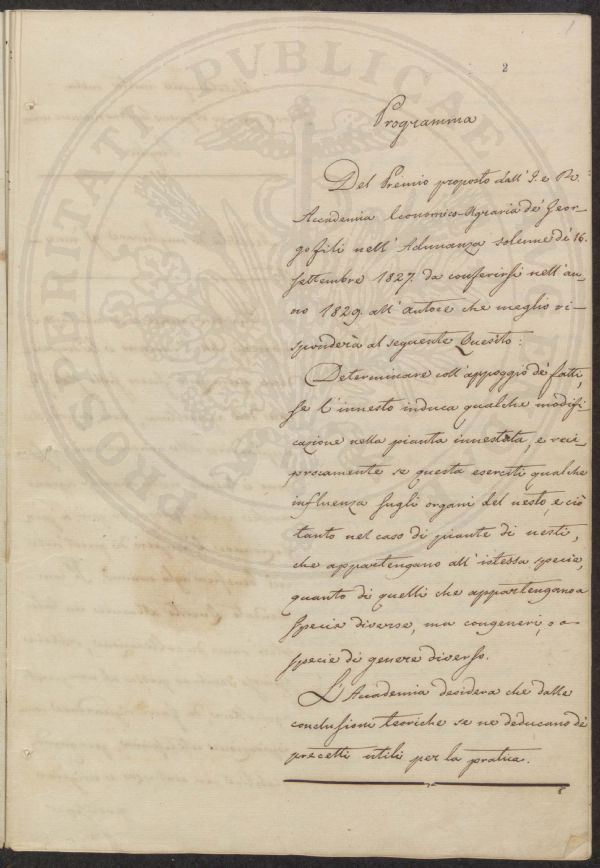 1
2
PROSPERITATI PVBLICAE
Programma
Del Premio proposto dall' I. e R.
Accademia Economico-Agraria de' Geor-
gofili nell' Adunanza solenne de' 16.
settembre 1827. da conferirsi nell' an-
no 1829. all' autore che meglio ri-
sponderà al seguente Quesito:
Determinare coll' appoggio de' fatti,
se l' innesto induca qualche modifi-
cazione nella pianta innestata, e reci-
procamente se questa eserciti qualche
influenza sugli organi del nesto e ciò
tanto nel caso di piante di nesti,
che appartengano all' istessa specie,
quanto di quelli che appartengano a
specie diverse, ma congeneri, o a
specie di genere diverso.
L' Accademia desidera che dalle
conclusioni teoriche se ne deducano de'
precetti utili per la pratica.